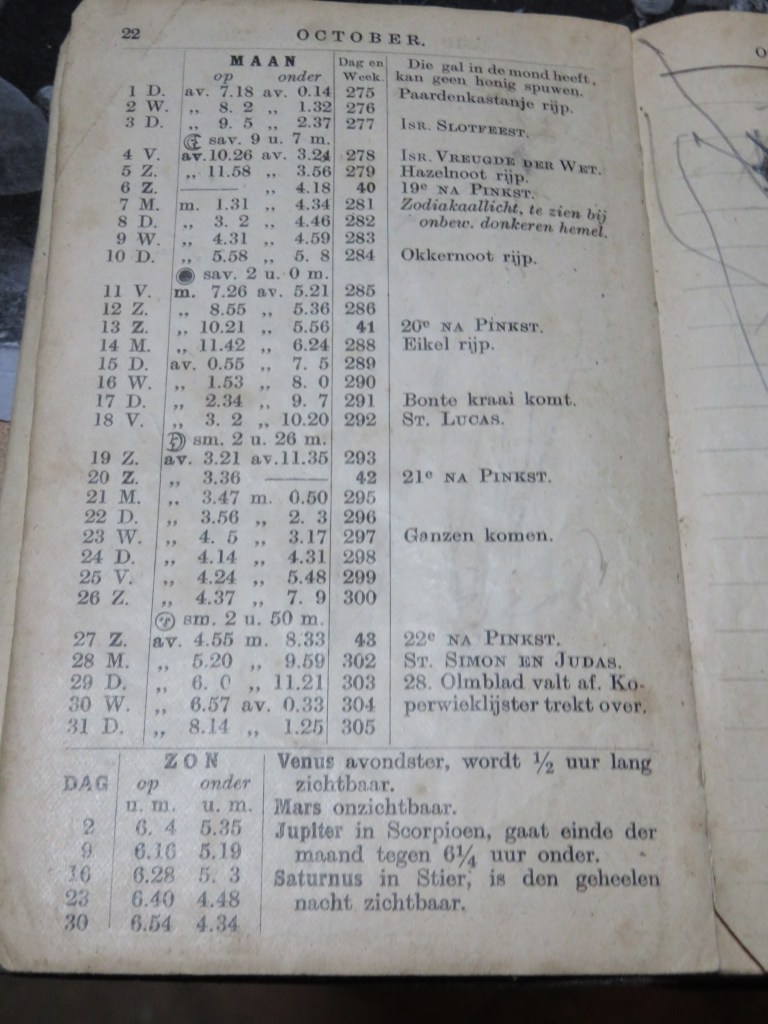 22 OCTOBER.
MAAN Dag en Die gal in de mond heeft,
op onder Week. kan geen honig spuwen.
1 D. av. 7.18 av. 0.14 275 Paardenkastanje rijp.
2 W. ,, 8. 2 ,, 1.32 276
3 D. ,, 9. 5 ,, 2.37 277 ISR. SLOTFEEST.
sav. 9 u. 7 m.
4 V. av.10.26 av. 3.24 278 ISR. VREUGDE DER WET.
5 Z. ,, 11.58 ,, 3.56 279 Hazelnoot rijp.
6 Z. —— ,, 4.18 40 19e NA PINKST.
7 M. m. 1.31 ,, 4.34 281 Zodiakaallicht, te zien bij
8 D. ,, 3. 2 ,, 4.46 282 onbew. donkeren hemel.
9 W. ,, 4.31 ,, 4.59 283
10 D. ,, 5.58 ,, 5. 8 284 Okkernoot rijp.
sav. 2 u. 0 m.
11 V. m. 7.26 av. 5.21 285
12 Z. ,, 8.55 ,, 5.36 286
13 Z. ,, 10.21 ,, 5.56 41 20e NA PINKST.
14 M. ,, 11.42 ,, 6.24 288 Eikel rijp.
15 D. av. 0.55 ,, 7. 5 289
16 W. ,, 1.53 ,, 8. 0 290
17 D. ,, 2.34 ,, 9. 7 291 Bonte kraai komt.
18 V. ,, 3. 2 ,, 10.20 292 ST. LUCAS.
sm. 2 u. 26 m.
19 Z. av. 3.21 av.11.35 293
20 Z. ,, 3.36 —— 42 21e NA PINKST.
21 M. ,, 3.47 m. 0.50 295
22 D. ,, 3.56 ,, 2. 3 296
23 W. ,, 4. 5 ,, 3.17 297 Ganzen komen.
24 D. ,, 4.14 ,, 4.31 298
25 V. ,, 4.24 ,, 5.48 299
26 Z. ,, 4.37 ,, 7. 9 300
sm. 2 u. 50 m.
27 Z. av. 4.55 m. 8.33 43 22e NA PINKST.
28 M. ,, 5.20 ,, 9.59 302 ST. SIMON EN JUDAS.
29 D. ,, 6. 0 ,, 11.21 303 28. Olmblad valt af. Ko-
30 W. ,, 6.57 av. 0.33 304 perwieklijster trekt over.
31 D. ,, 8.14 ,, 1.25 305
ZON Venus avondster, wordt ½ uur lang
DAG op onder zichtbaar.
u. m. u. m. Mars onzichtbaar.
2 6. 4 5.35 Jupiter in Scorpioen, gaat einde der
9 6.16 5.19 maand tegen 6¼ uur onder.
16 6.28 5. 3 Saturnus in Stier, is den geheelen
23 6.40 4.48 nacht zichtbaar.
30 6.54 4.34
O